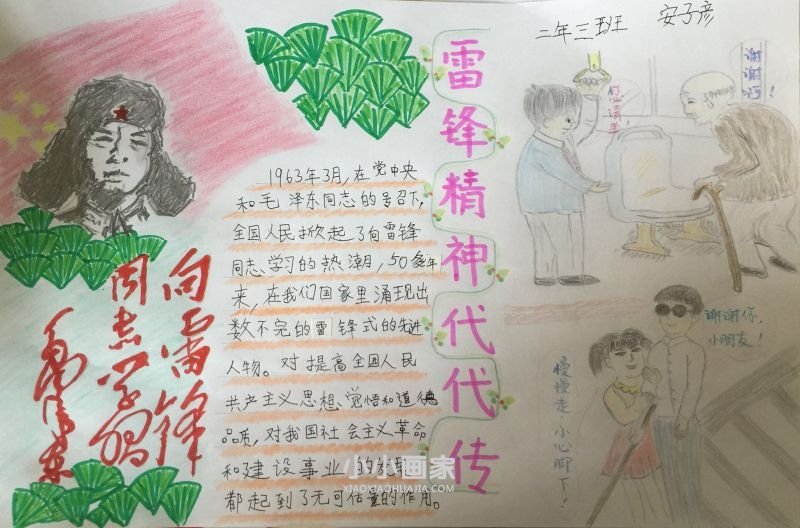 二年三班 安子彦
雷锋精神代代传
1963年3月，在党中央
和毛泽东同志的号召下，
全国人民掀起了向雷锋
同志学习的热潮，50多年
来，在我们国家里涌现出
数不完的雷锋式的先进
人物。对提高全国人民
共产主义思想、觉悟和道德
品质，对我国社会主义革命
和建设事业的发展
都起到了无可估量的作用。
向雷锋
同志学习
毛泽东
您请坐
谢谢啊！
谢谢你，
小朋友！
慢慢走，小心脚下！
小小画家
XIAOXIAOHUAJIA.COM